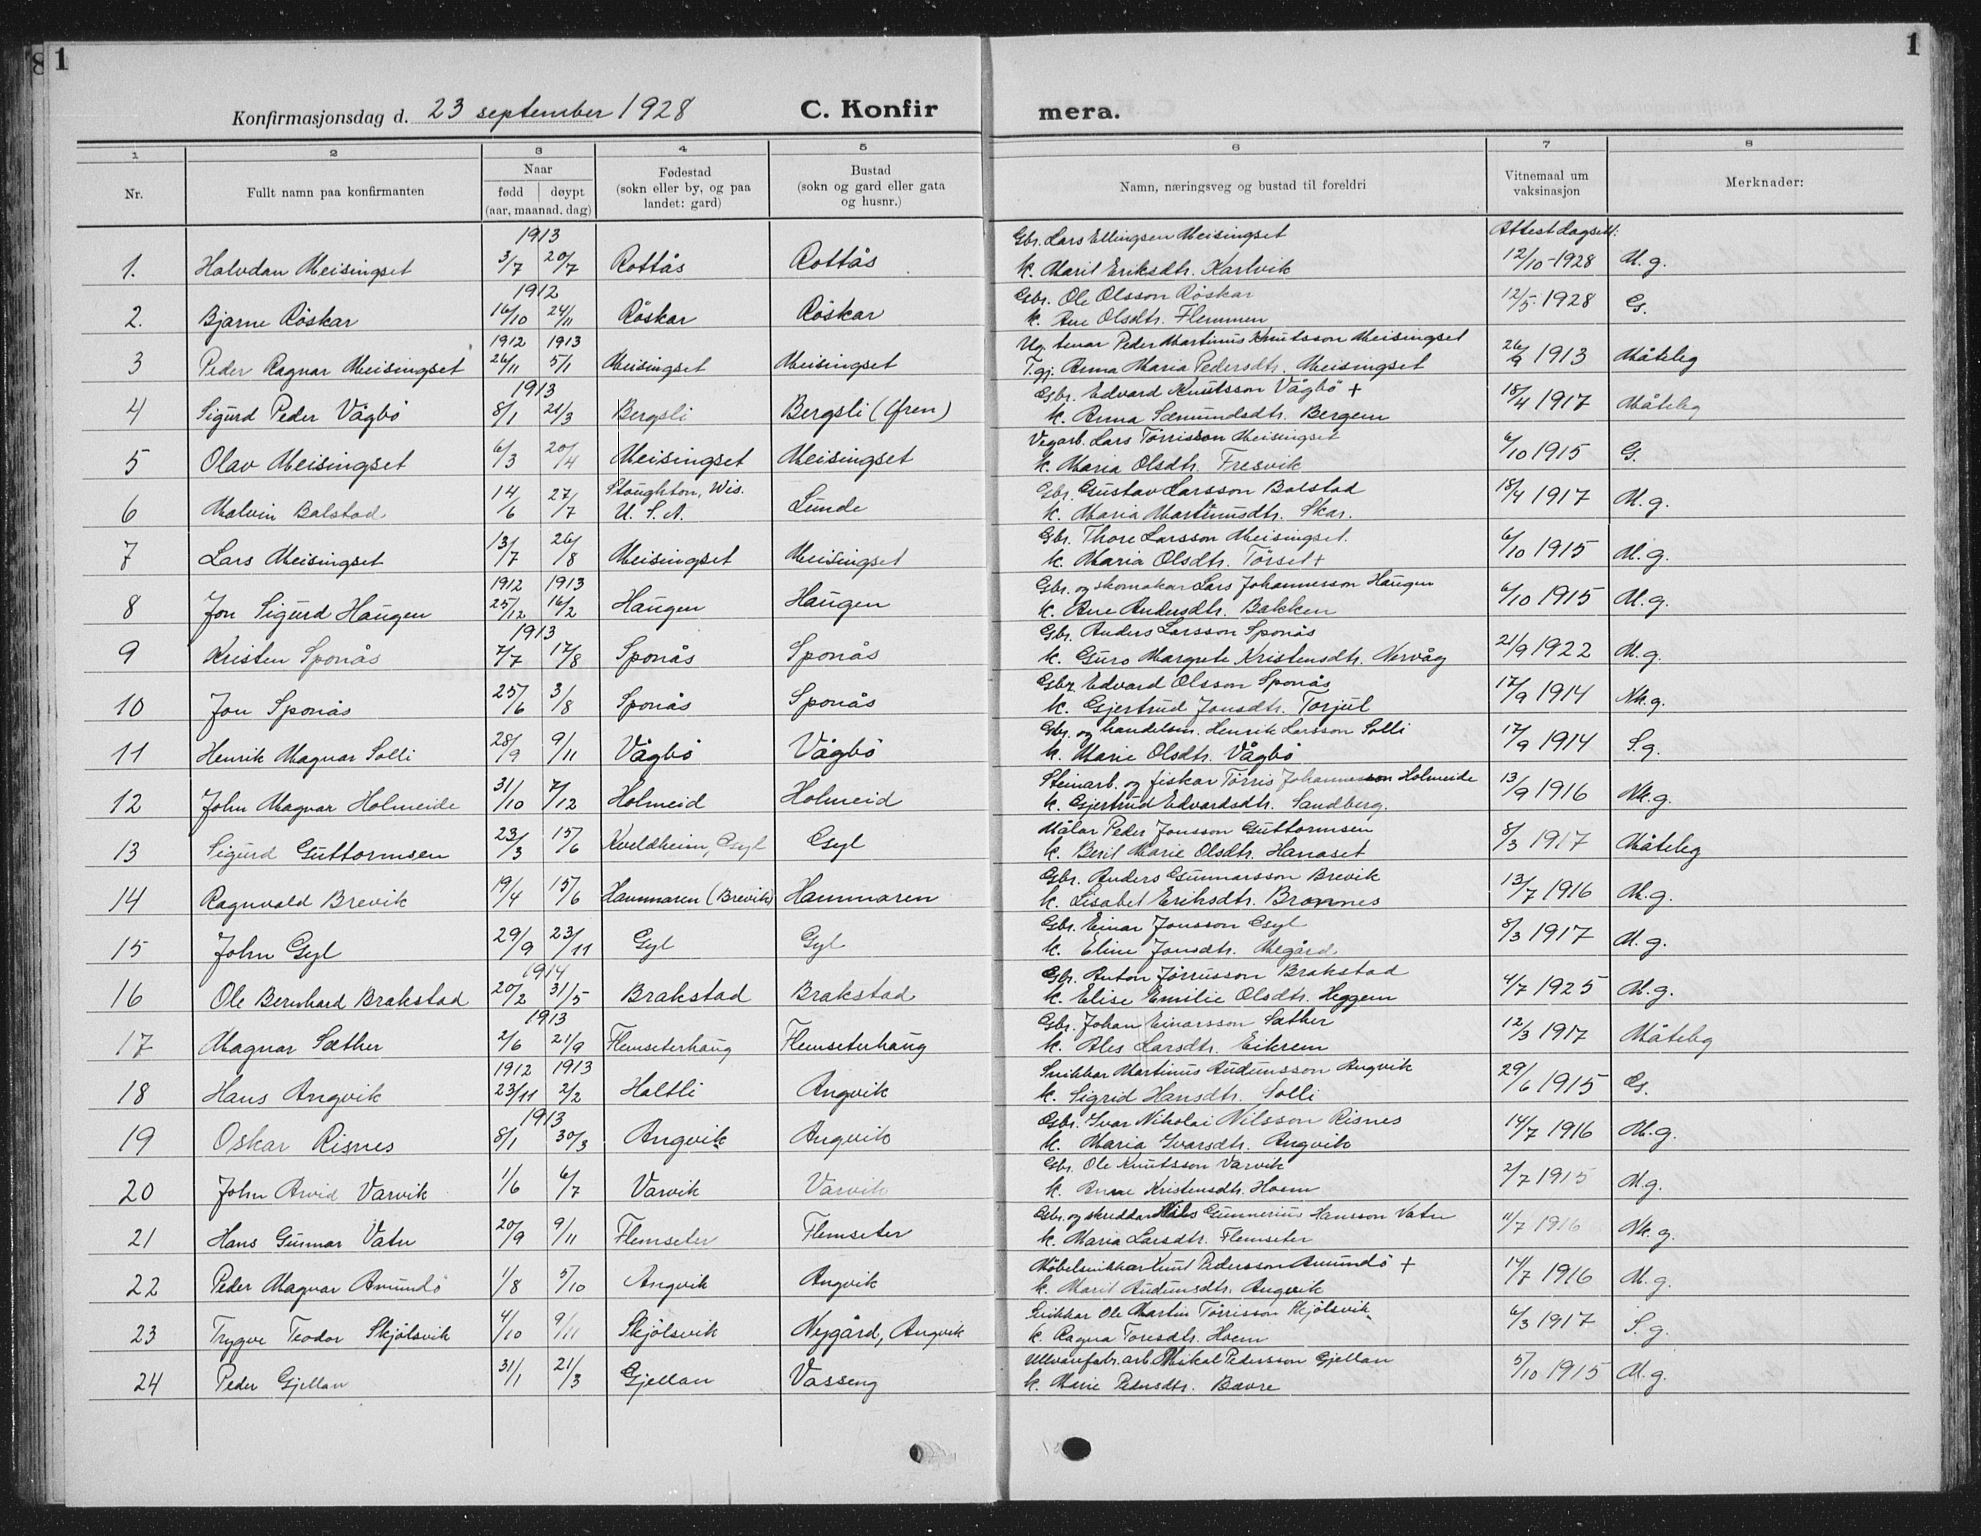 1
1
Konfirmasjonsdag d. 23 september 1928 C. Konfir mera.
1 2 3 4 5 6 7 8
Nr. Fullt namn paa konfirmanten Naar født døypt (aar, maanad, dag) Fødestad (sokn eller by, og paa landet: gard) Bustad (sokn og gard eller gata og husnr.) Namn, næringsveg og bustad til foreldri Vitnemaal um vaksinasjon Merknader:
1913 Gbr. Lars Ellingsen Meisingset Attest dagsett:
1. Halvdan Meisingset 3/7 20/7 Rottås Rottås k. Marit Eriksdtr. Karlvik 12/10-1928 M.g.
1912 Gbr. Ole Olsson Röskar
2. Bjarne Röskar 16/10 24/11 Röskar Röskar k. Ane Olsdtr. Flemmen 12/5 1928 G.
1912 1913 Ug. tenar Peder Martinus Knutsson Meisingset
3 Peder Ragnar Meisingset 26/11 5/1 Meisingset Meisingset T.gj. Anna Maria Pedersdtr. Meisingset 26/9 1913 Måteleg
1913 Gbr. Edvard Knutsson Vågbö +
4 Sigurd Peder Vågbö 8/1 21/3 Bergsli Bergsli (Øren) k. Anna Sæmundsdtr. Bergem 18/4 1917 Måteleg
Vegarb. Lars Törrisson Meisingset
5 Olav Meisingset 6/3 20/4 Meisingset Meisingset k. Maria Olsdtr. Fresvik 6/10 1915 G.
Stoughton, Wis. Gbr. Gustav Larsson Balstad
6 Malvin Balstad 14/6 27/7 U.S.A. Lunde k. Maria Martinusdtr. Skar. 18/4 1917 M.g.
Gbr. Thore Larsson Meisingset.
7 Lars Meisingset 13/7 26/8 Meisingset Meisingset k. Maria Olsdtr. Törset + 6/10 1915 M.g.
1912 1913 Gbr. og skomakar Lars Johannesson Haugen
8 Jon Sigurd Haugen 25/12 16/2 Haugen Haugen k. Ane Andersdtr. Bakken 6/10 1915 M.g.
1913 Gbr. Anders Larsson Sponås
9 Kristen Sponås 7/7 17/8 Sponås Sponås k. Guro Margrete Kristensdtr. Nervåg 21/9 1922 M.g.
Gbr. Edvard Olsson Sponås
10 Jon Sponås 25/6 3/8 Sponås Sponås k. Gjertrud Jonsdtr. Torjul 17/9 1914 Mk.g.
Gbr. og handelsm. Henrik Larsson Solli
11 Henrik Magnar Solli 28/9 9/11 Vågbö Vågbö k. Marie Olsdtr. Vågbö 17/9 1914 S.g.
Steinarb. og fiskar Törris Johannesson Holmeide
12 John Magnar Holmeide 31/10 7/12 Holmeid Holmeid k. Gjertrud Edvardsdtr. Sandberg. 13/9 1916 Mk.g.
Målar Peder Jonsson Guttormsen
13 Sigurd Guttormsen 23/3 15/6 Kveldheim, Gyl Gyl k. Berit Marie Olsdtr. Hanaset 8/3 1917 Måteleg
Gbr. Anders Gunnarsson Brevik
14 Ragnvald Brevik 19/4 15/6 Hammaren (Brevik) Hammaren k. Lisabet Eriksdtr. Bronnes 13/7 1916 M.g.
Gbr. Einar Jonsson Gyl
15 John Gyl 29/9 23/11 Gyl Gyl k. Eline Jonsdtr. Megård. 8/3 1917 M.g.
1914 Gbr. Anton Jörrisson Brakstad
16 Ole Bernhard Brakstad 20/2 31/5 Brakstad Brakstad k. Elise Emilie Olsdtr. Heggem 4/7 1925 M.g.
1913 Gbr. Johan Einarsson Sæther
17 Magnar Sæther 2/6 21/9 Flemseterhaug Flemseterhaug k. Ales Larsdtr. Eikrem 12/3 1917 Måteleg
1912 1913 Snikkar Martinus Audunsson Angvik
18 Hans Angvik 23/11 2/2 Holtli Angvik k. Sigrid Hansdtr. Solli 29/6 1915 G.
1913 Gbr. Ivar Nikolai Nilsson Risnes
19 Oskar Risnes 8/1 30/3 Angvik Angvik k. Maria Ivarsdtr. Angvik 14/7 1916 M.g.
Gbr. Ole Knutsson Varvik
20 John Arvid Varvik 1/6 6/7 Varvik Varvik k. Anne Kristensdtr. Hoem 2/7 1915 M.g.
Gbr. og skreddar Nils Gunnerius Hansson Vatn
21 Hans Gunnar Vatn 20/9 9/11 Flemseter Flemseter k. Maria Larsdtr. Flemseter 11/7 1916 Mk.g.
Möbelsnikkar Knut Pedersson Amundö +
22 Peder Magnar Amundö 1/8 5/10 Angvik Angvik k. Marit Audunsdtr. Angvik 14/7 1916 M.g.
Snikkar Ole Martin Törrisson Skjölsvik
23 Trygve Teodor Skjölsvik 4/10 9/11 Skjölsvik Nygård, Angvik k. Ragna Toresdtr. Hoem 6/3 1917 S.g.
Ullvarefabr.arb. Mikal Pedersson Gjellan
24 Peder Gjellan 31/1 21/3 Gjellan Vasseng k. Marie Pedersdtr. Bævre 5/10 1915 M.g.